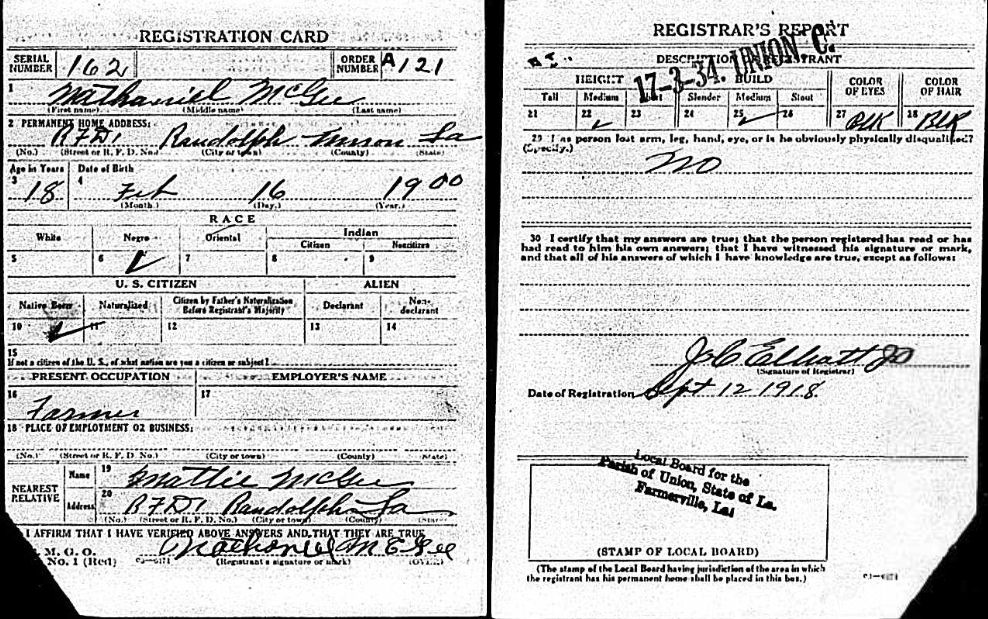 REGISTRATION CARD
SERIAL NUMBER 162 ORDER NUMBER A 121
1 Nathaniel McGee
(First name) (Middle name) (Last name)
2 PERMANENT HOME ADDRESS:
RFD1 Randolph Union La
(No.) (Street or R. F. D. No.) (City or town) (County) (State)
Age in Years Date of Birth
3 18 4 Feb 16 1900
(Month.) (Day.) (Year.)
RACE
White Negro Oriental Indian
Citizen Noncitizen
5 6 ✓ 7 8 9
U. S. CITIZEN ALIEN
Native Born Naturalized Citizen by Father's Naturalization Before Registrant's Majority Declarant Non-declarant
10 ✓ 11 12 13 14
15
If not a citizen of the U. S., of what nation are you a citizen or subject?
PRESENT OCCUPATION EMPLOYER'S NAME
16 Farmer 17
18 PLACE OF EMPLOYMENT OR BUSINESS:
(No.) (Street or R. F. D. No.) (City or town) (County) (State)
NEAREST RELATIVE Name 19 Mattie McGee
Address 20 RFD1 Randolph La
(No.) (Street or R. F. D. No.) (City or town) (County) (State)
I AFFIRM THAT I HAVE VERIFIED ABOVE ANSWERS AND THAT THEY ARE TRUE
Nathaniel McGee
M. G. O.
No. 1 (Red) (Registrant's signature or mark) (OVER)
REGISTRAR'S REPORT
17-3-34. UNION C.
DESCRIPTION OF REGISTRANT
HEIGHT BUILD COLOR OF EYES COLOR OF HAIR
Tall Medium Short Slender Medium Stout
21 22 ✓ 23 24 25 ✓ 26 27 BLK 28 BLK
29 Has person lost arm, leg, hand, eye, or is he obviously physically disqualified?
(Specify.)
no
30 I certify that my answers are true; that the person registered has read or has
had read to him his own answers; that I have witnessed his signature or mark,
and that all of his answers of which I have knowledge are true, except as follows:
(Signature of Registrar)
Date of Registration Sept 12 1918
Local Board for the
Parish of Union, State of La.
Farmerville, La.
(STAMP OF LOCAL BOARD)
(The stamp of the Local Board having jurisdiction of the area in which
the registrant has his permanent home shall be placed in this box.)